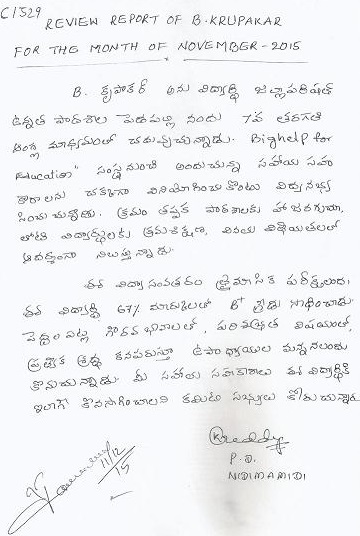 C1529
REVIEW REPORT OF B. KRUPAKAR
FOR THE MONTH OF NOVEMBER - 2015
B. కృపాకర్ అను విద్యార్థి జిల్లాపరిషత్
ఉన్నత పాఠశాల పెడపల్లి నందు 7వ తరగతి
ఆంగ్ల మాధ్యమంలో చదువుచున్నాడు. Bighelp for
Education" సంస్థనుంచి అందుచున్న సహాయ సహ
కారాలను చక్కగా వినియోగించుకొంటు విద్యనభ్య
సించుచున్నాడు. క్రమం తప్పక పాఠశాలకు హాజరగుచూ,
తోటి విద్యార్థులకు క్రమశిక్షణ, వినయ విధేయతలలో
ఆదర్శంగా నిలుస్తున్నాడు.
ఈ విద్యా సంవత్సరం త్రైమాసిక పరీక్షలందు,
ఈ విద్యార్థి 67% మార్కులలో B+ గ్రేడు సాధించాడు.
పెద్దల పట్ల గౌరవభావాలలో, పరిశుభ్రత విషయంలో,
ప్రత్యేక శ్రద్ధ కనపరుస్తూ ఉపాధ్యాయుల మన్ననలందు
కొనుచున్నాడు. మీ సహాయ సహకారాలు ఈ విద్యార్థికి
ఇలాగే కొనసాగించాలని కమిటి సభ్యులు కోరుచున్నారు.
KReddy
P.D.
NIDIMAMIDI
11/12/15